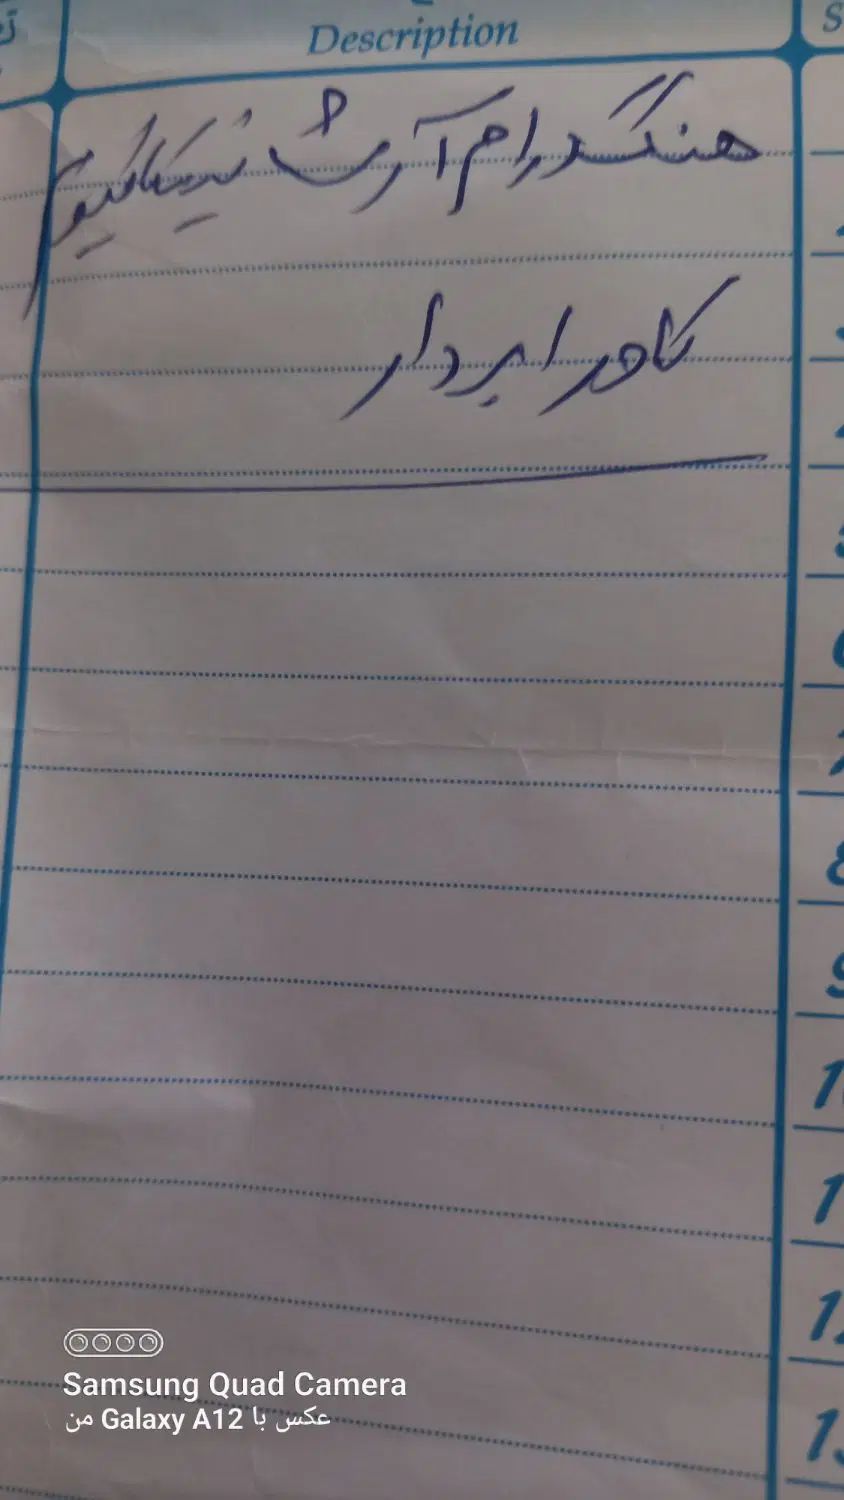 Description
هنگدرام آرش نیکالیوم
کاور ایردار
8
9
11
12
13
Samsung Quad Camera
عکس با Galaxy A12 من